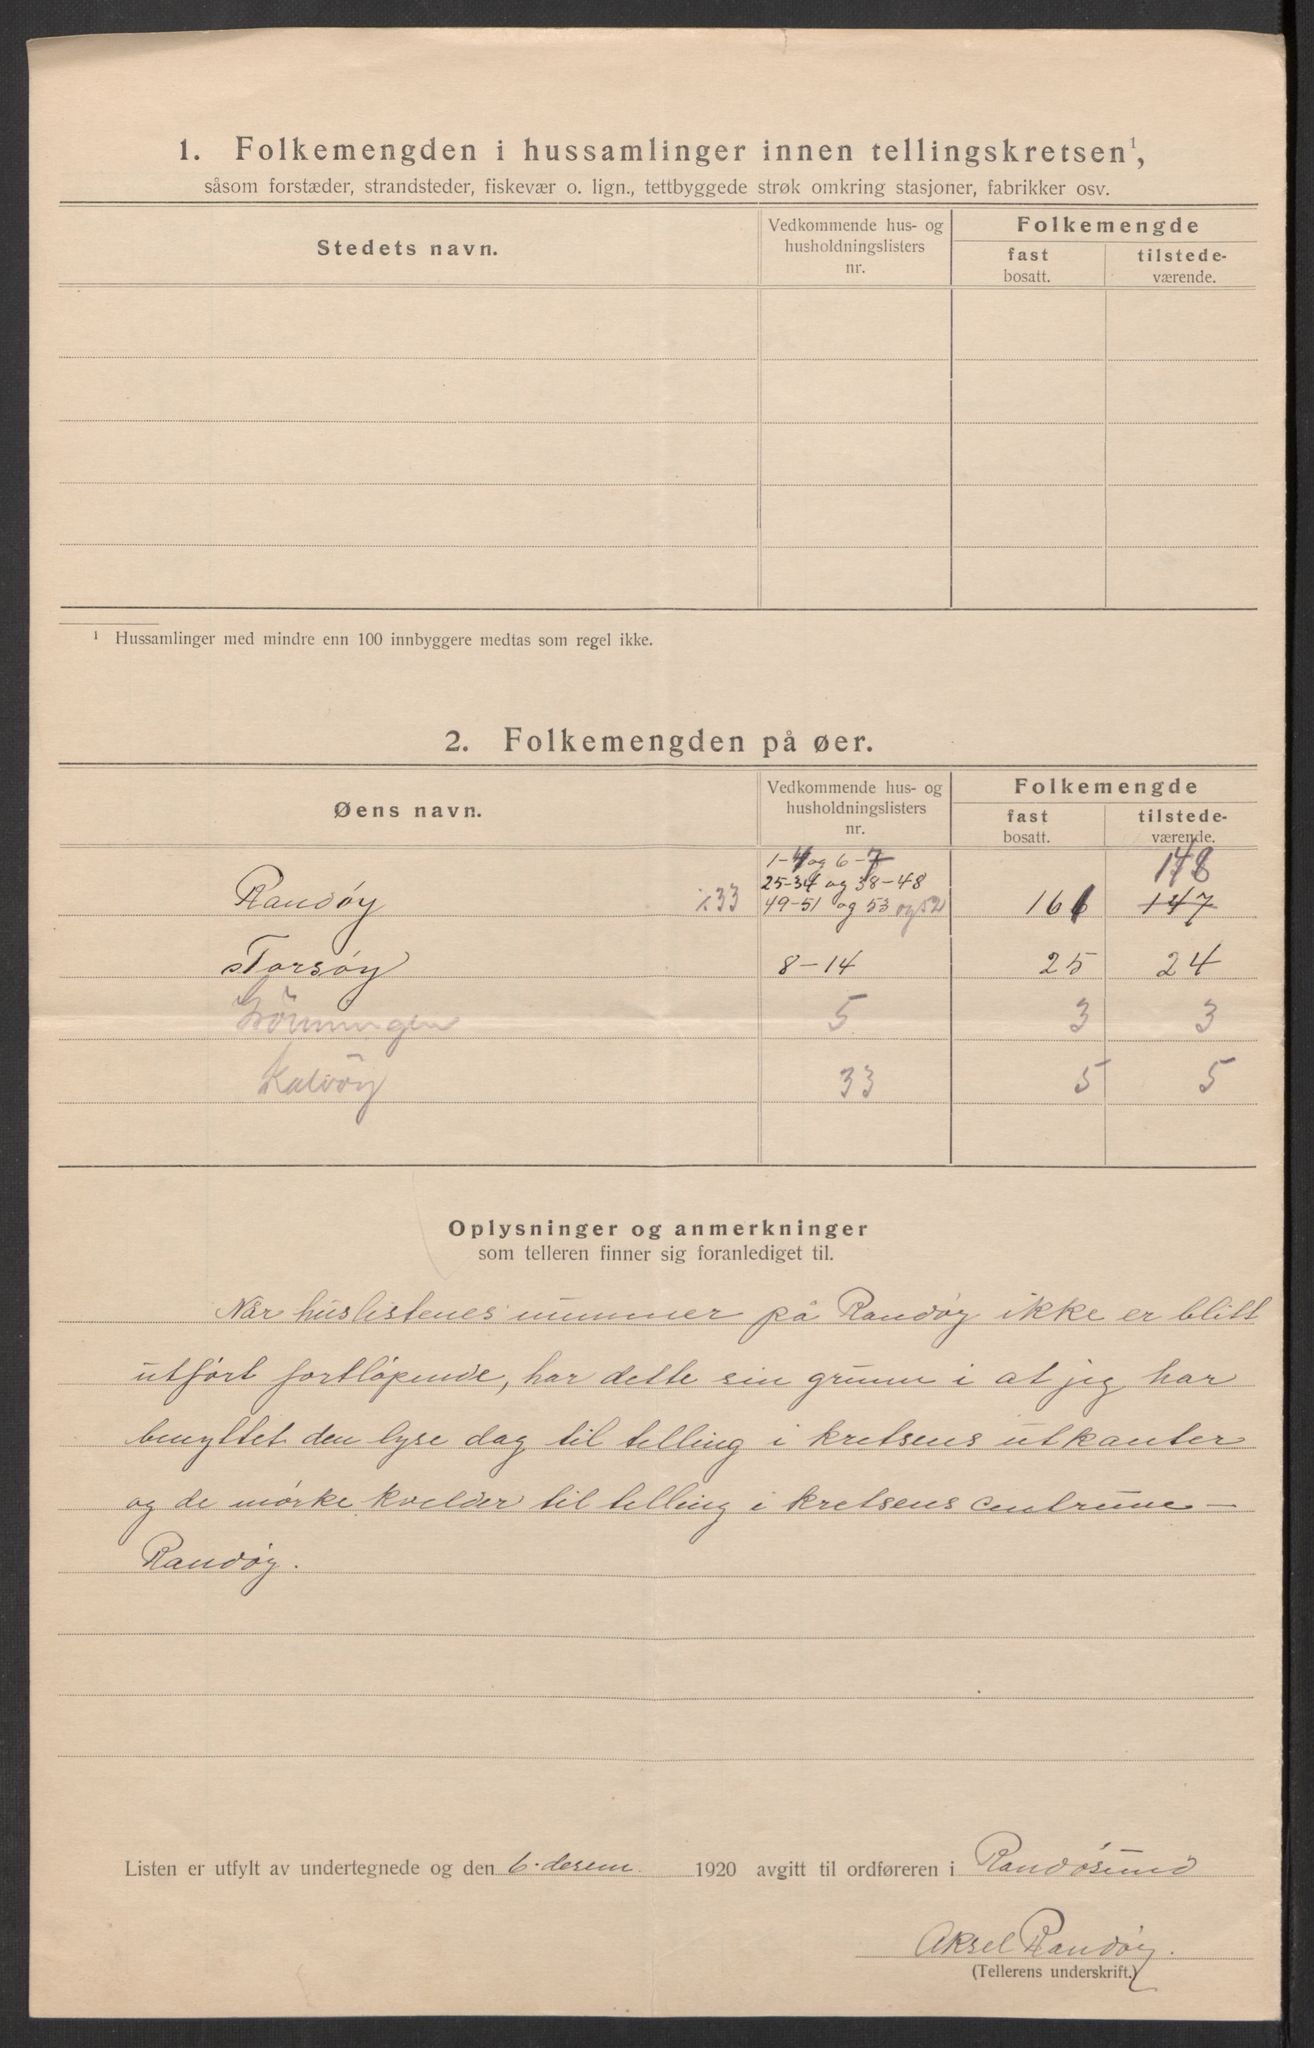 1. Folkemengden i hussamlinger innen tellingskretsen¹,
såsom forstæder, strandsteder, fiskevær o. lign., tettbyggede strøk omkring stasjoner, fabrikker osv.
Stedets navn.
Vedkommende hus- og
husholdningslisters
nr.
Folkemengde
fast
bosatt.
tilstede-
værende.
¹ Hussamlinger med mindre enn 100 innbyggere medtas som regel ikke.
2. Folkemengden på øer.
Øens navn.
Vedkommende hus- og
husholdningslisters
nr.
Folkemengde
fast
bosatt.
tilstede-
værende.
1-4 og 6-7 148
25-34 og 38-48
Randøy ⁒33 49-51 og 53 og 52 161 147
Torsøy 8-14 25 24
Grönningen 5 3 3
Kalvöy 33 5 5
Oplysninger og anmerkninger
som telleren finner sig foranlediget til.
Når huslistenes nummer på Randøy ikke er blitt
utført fortløpende, har dette sin grunn i at jeg har
benyttet den lyse dag til telling i kretsens utkanter
og de mørke kvelder til telling i kretsens centrum -
Randøy.
Listen er utfylt av undertegnede og den 6. desem 1920 avgitt til ordføreren i Randøsund
Aksel Randøy.
(Tellerens underskrift.)